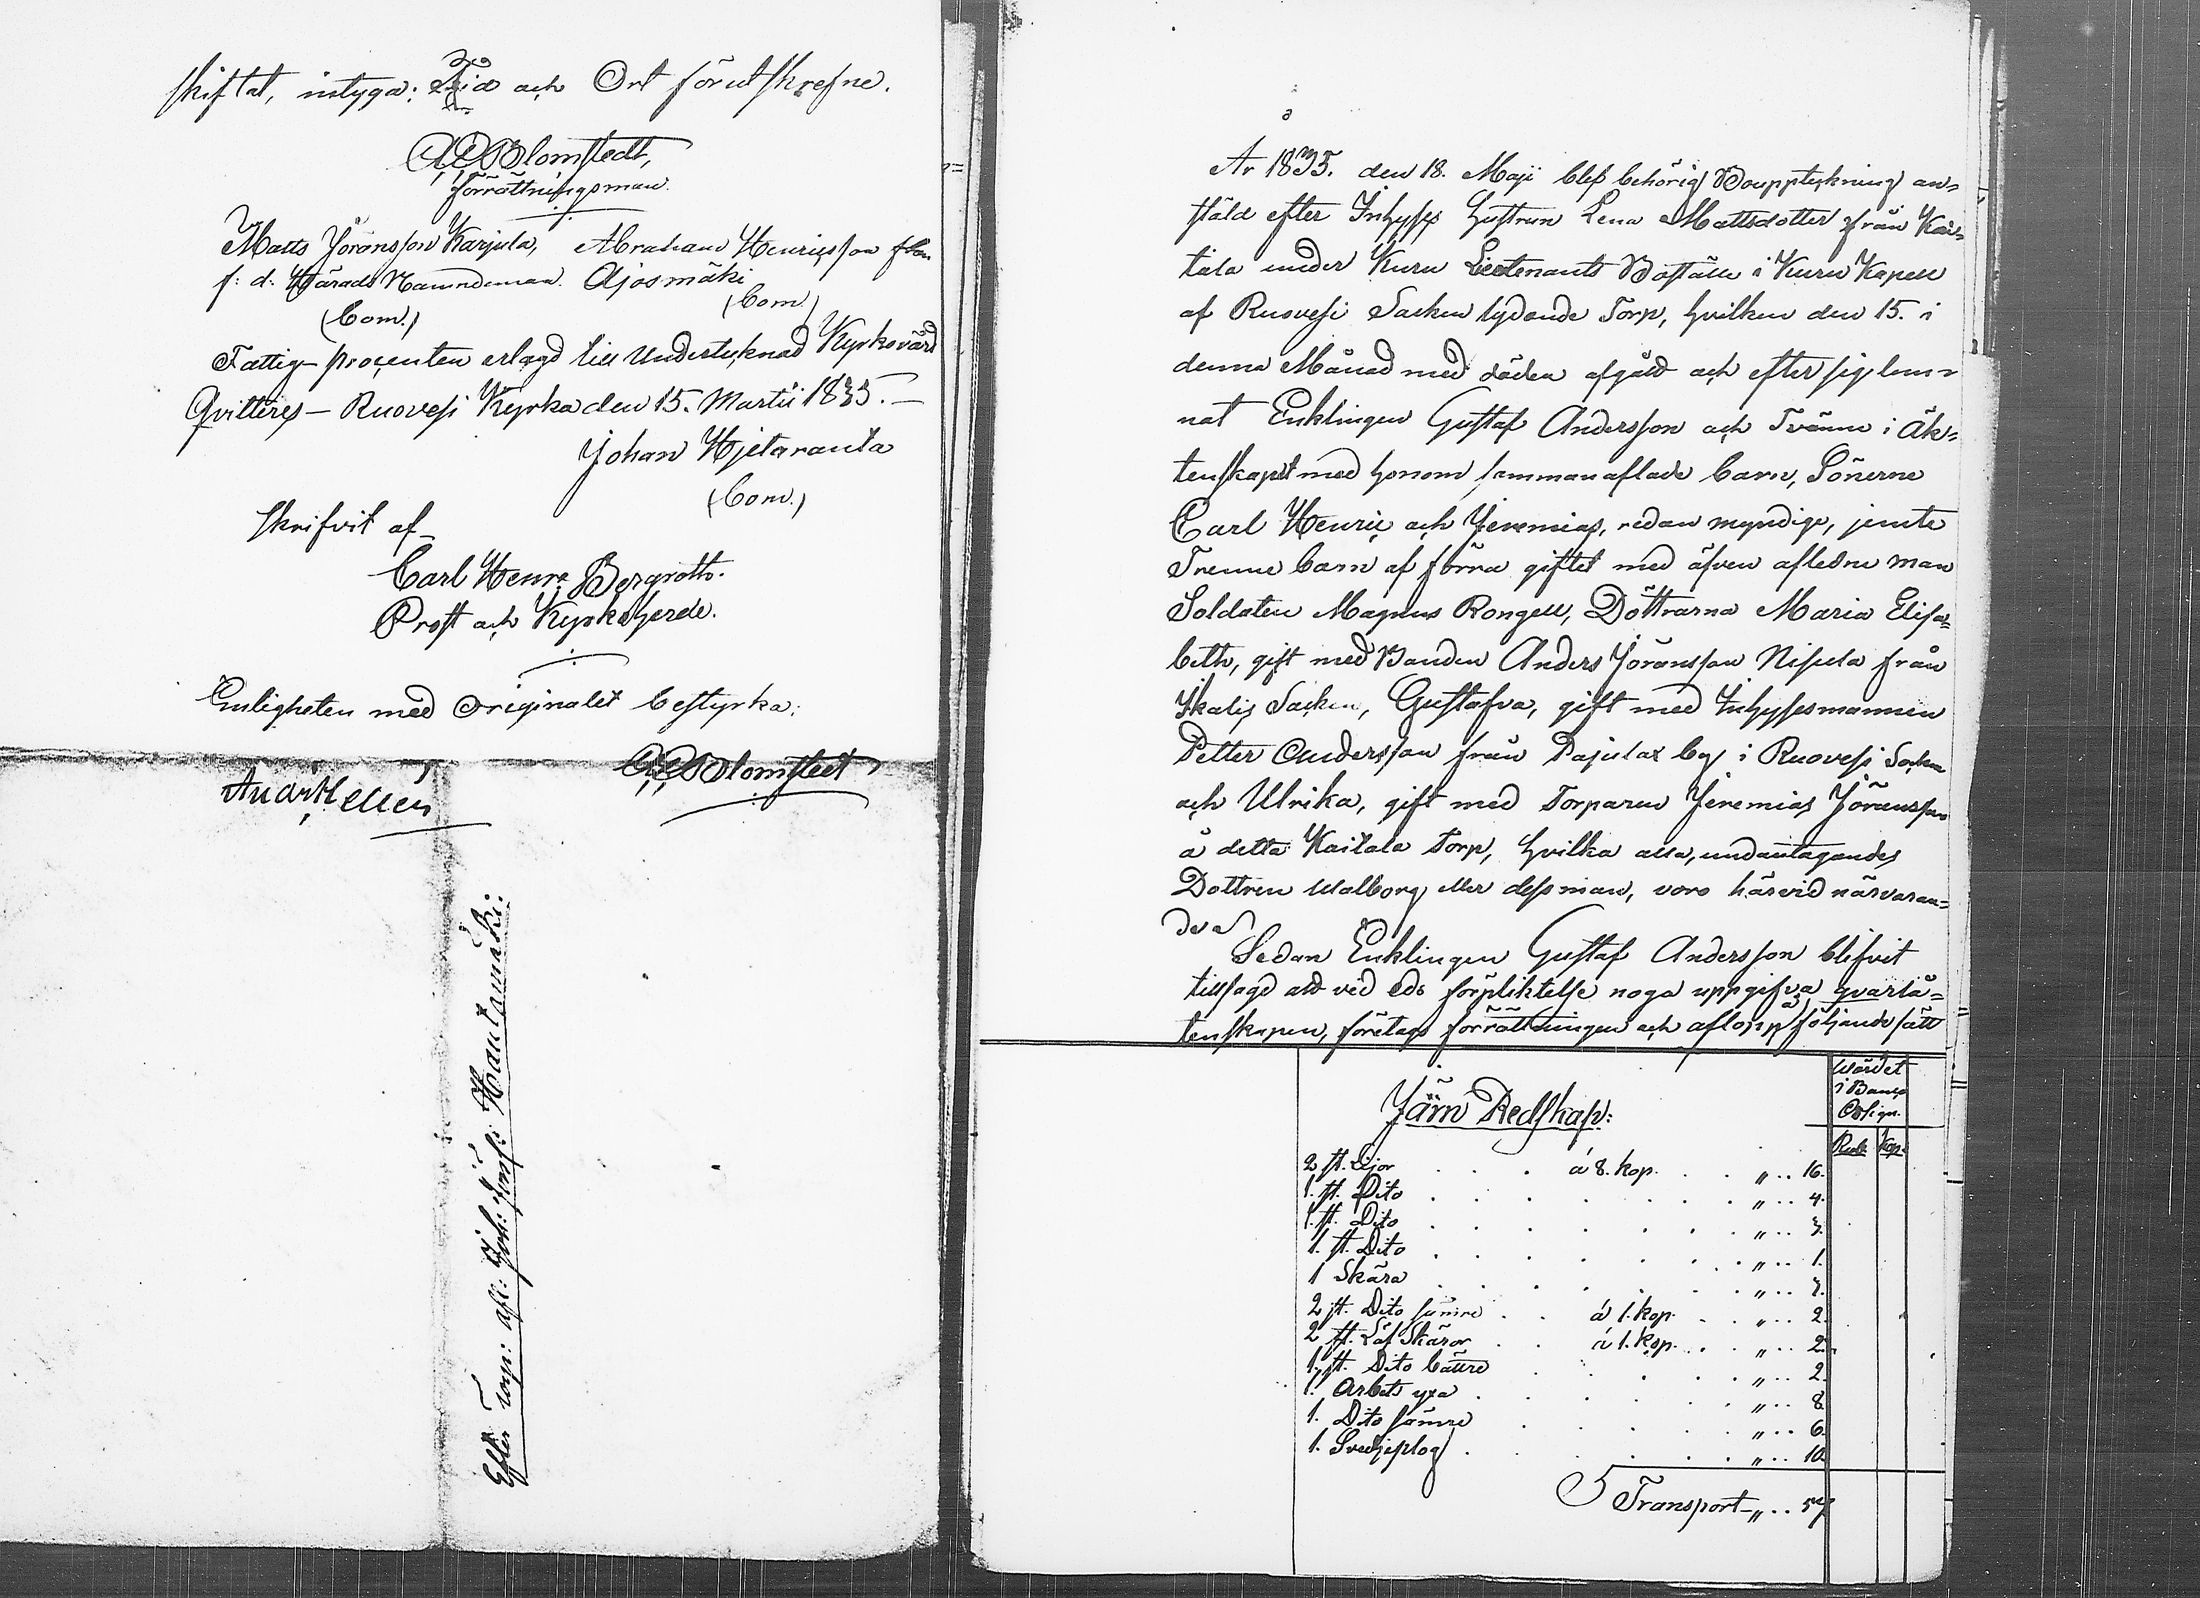 skiftat, intyga; Tid och Ort förutskrefne.
A. E. Blomstedt,
förrättningsman.
Matts Jöransson Karjula, Abraham Henricsson från
f: d: Härads Nämndeman. Ajosmäki
(Bom.) (Bom.)
Fattig-procenten erlagd till undertecknad Kyrkovärd
Qvitteres – Ruovesi Kyrka den 15. Martii 1835. –
Johan Hjetaranta
(Bom.)
Skrifvit af
Carl Henr. Bergroth.
Prost och Kyrkoherde.
Enligheten med Originalet bestyrka:
A. E. Blomstedt
And: Hellén
Efter Torp: afl: Joh: Hautamäki:
År 1835. den 18. Maji blef behörig Bouppteckning an=
stäld efter Inhyses Hustrun Lena Mattsdotter från Kai=
tala under Kuru Lieutenants Boställe i Kuru Kapell
af Ruovesi Socken lydande Torp, hvilken den 15. i
denna Månad med döden afgått och efter sig lem=
nat Enklingen Gustaf Andersson och Tvänne i Äk=
tenskapet med honom sammanaflade barn, Sönerne
Carl Henric och Jeremias, redan myndige, jemte
Trenne barn af förra giftet med äfven afledne man
Soldaten Magnus Rongell, Döttrarna Maria Elisa=
beth, gift med Bonden Anders Jöransson Nisula från
Ikalis Socken, Gustafva, gift med Inhysesmannen
Petter Andersson från Pajulax by i Ruovesi Socken
och Ulrika, gift med Torparen Jeremias Jöransson
å detta Kaitala Torp, hvilka alla, undantagandes
Dottren Walborg eller dess man, voro härvid närvaran=
de.
Sedan Enklingen Gustaf Andersson blifvit
tillsagd att ved eds förpliktelse noga uppgifva qvarlå=
tenskapen, företogs förrättningen och aflopp å följande sätt
Wärdet
i Banco
Assign.
Järn Redskap:
Rub. Kop.
2 st. Lijor . . . á 8. kop. . . „ . . 16.
1. st. Dito . . . „ . . 4.
1. st. Dito . . . „ . . 3.
1. st. Dito . . . „ . . 1.
1 Skära . . . „ . . 3.
2 st. Dito sämre . . á 1. kop. . . „ . . 2.
2 st. Löf Skäror . . á 1. kop. . . „ . . 2.
1. st. Dito bättre . . . „ . . 2.
1. Arbets yxa . . . „ . . 8.
1. Dito sämre . . . „ . . 6.
1. Svedjeplog . . . „ . . 10.
Transport – „ . . 57